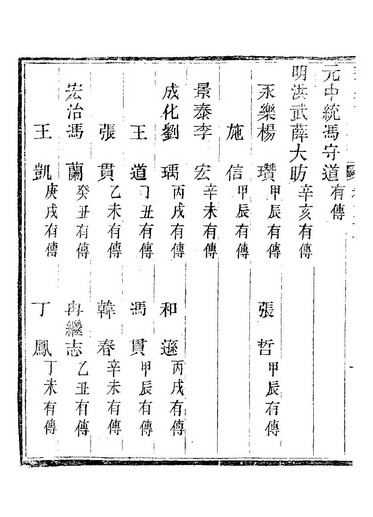 元中統馮守道有傳
明洪武薛大昉辛亥有傳
永樂楊瓚甲辰有傳 張哲甲辰有傳
施信甲辰有傳
景泰李宏辛未有傳
成化劉瑀丙戌有傳 和遜丙戌有傳
王道丑有傳 馮貫甲辰有傳
張貫乙未有傳 韓春辛未有傳
宏治馮蘭癸丑有傳 冉繼志乙丑有傳
王凱庚戌有傳 丁鳳丁未有傳